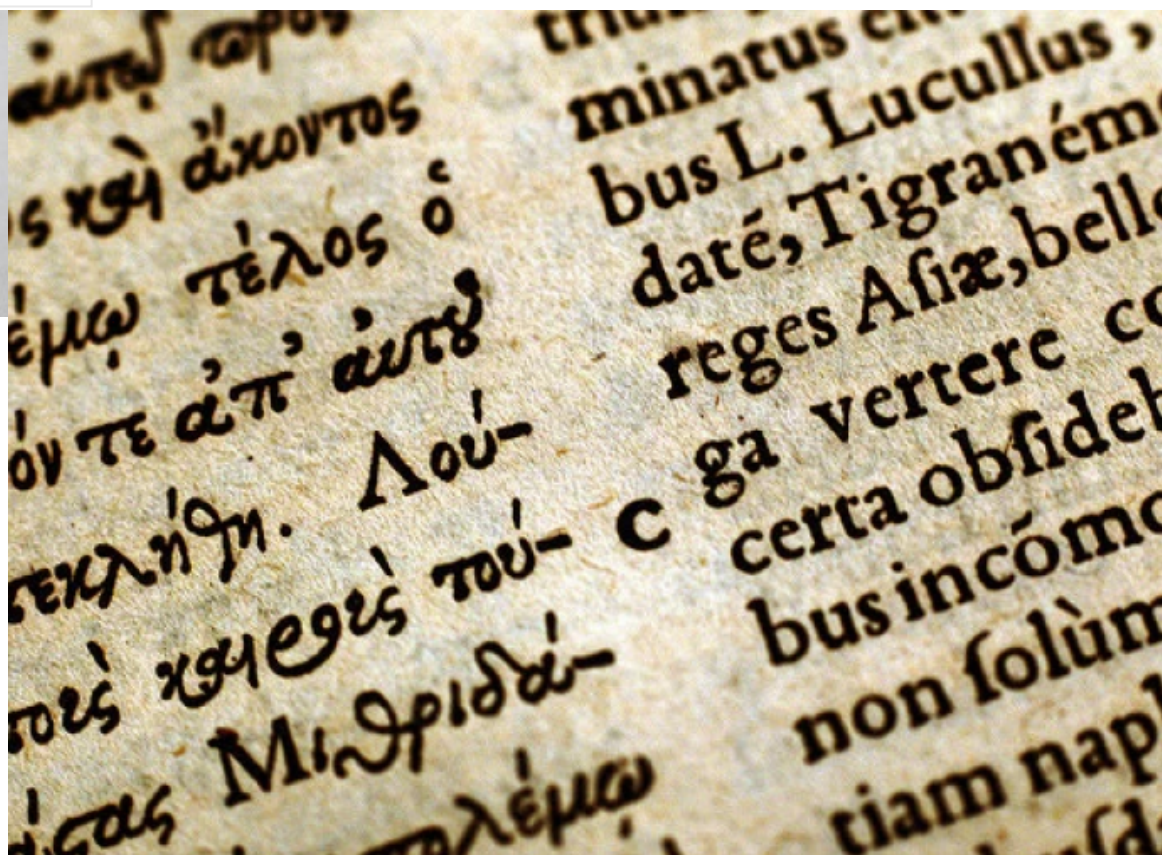 πρὸς
ς καὶ ἄκοντος
έμῳ τέλος ὁ
όν τε ἀπ' αὐτοῦ
τεκλήθη. Λού-
τοὺς καιροὺς τού-
Μιθριδά-
πολέμῳ
C
minatus
bus L. Lucullus,
datē, Tigranēm
reges Aſiæ, bello
ga vertere co
certa obſideb
bus incōmo
non ſolùm
tiam nap